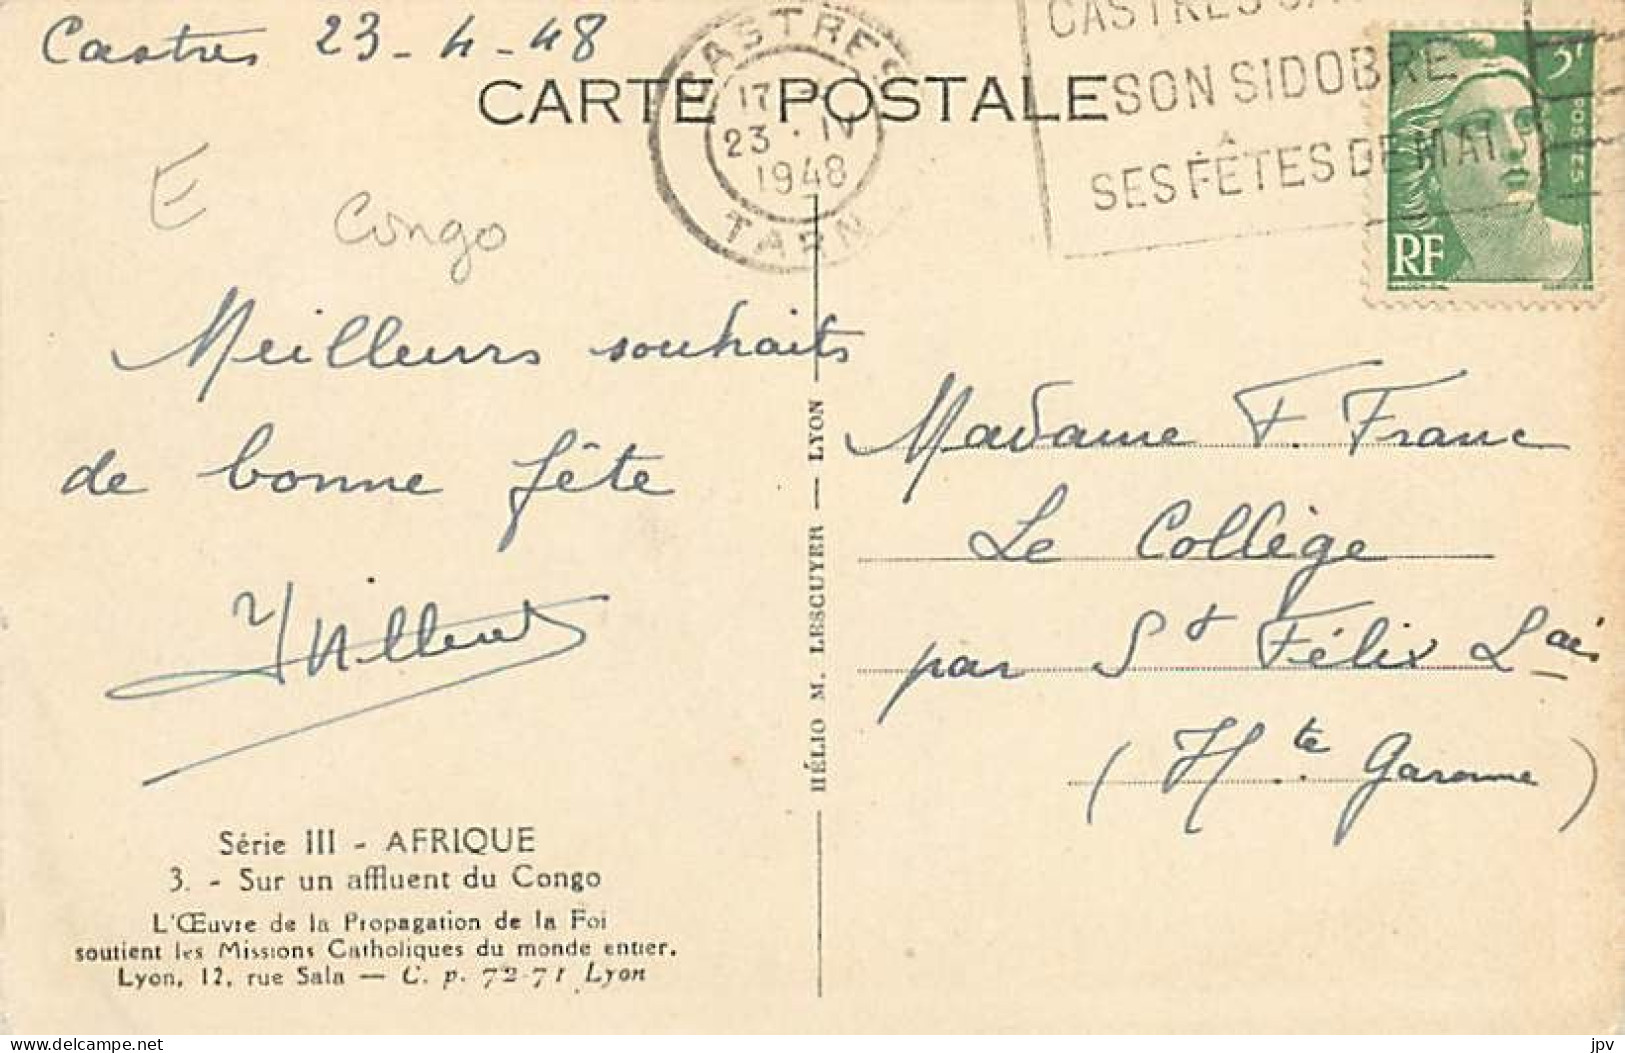 Castres 23-4-48
CARTE POSTALE
CASTRES
17
23 · IV
1948
TARN
CASTRES
SON SIDOBRE
SES FÊTES DE MAI
3F
POSTES
RF
E
Congo
Meilleurs souhaits
de bonne fête
Madame F. Franc
Le Collège
par St Félix Lais
(Hte Garonne)
HÉLIO M. LESCUYER — LYON
Série III - AFRIQUE
3. - Sur un affluent du Congo
L'Œuvre de la Propagation de la Foi
soutient les Missions Catholiques du monde entier.
Lyon, 12, rue Sala — C. p. 72-71 Lyon
delcampe.net
jpv